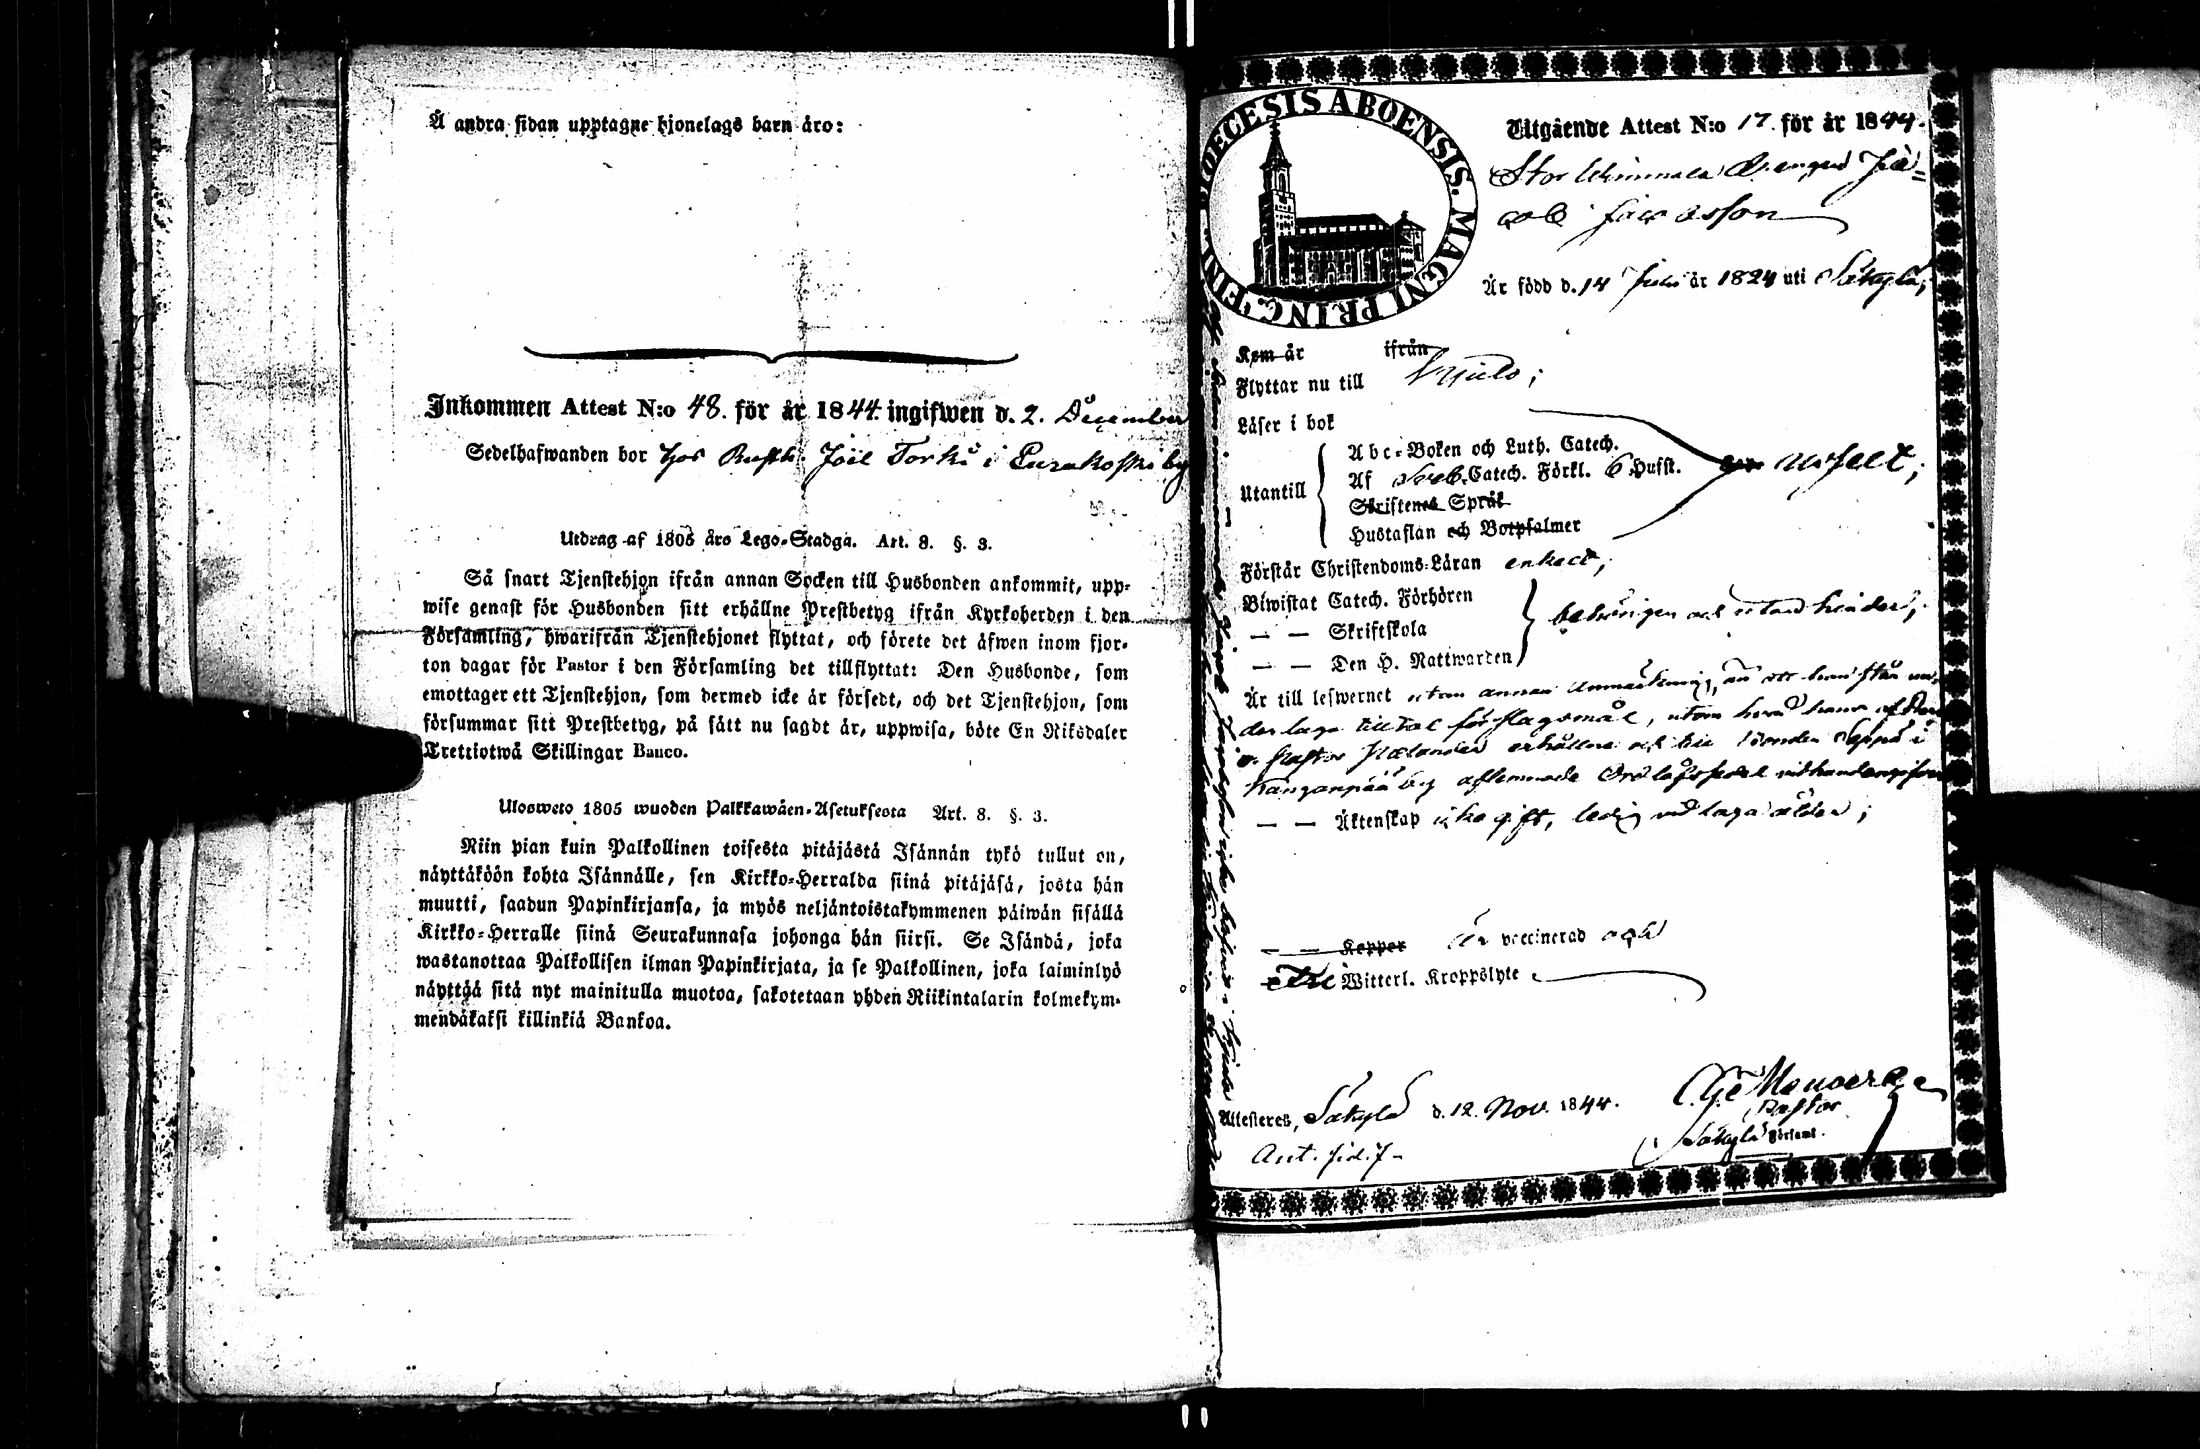 Å andra sidan upptagne hjonelags barn äro:
Inkommen Attest N:o 48. för år 1844 ingifwen d. 2. December
Sedelhafwanden bor hos Rusth. Joël Torki i Eurakoski by
Utdrag af 1805 års Lego-Stadga. Art. 8. §. 3.
Så snart Tjenstehjon ifrån annan Socken till Husbonden ankommit, upp-
wise genast för Husbonden sitt erhållne Prestbetyg ifrån Kyrkoherden i den
Församling, hwarifrån Tjenstehjonet flyttat, och förete det äfwen inom fjor-
ton dagar för Pastor i den Församling det tillflyttat: Den Husbonde, som
emottager ett Tjenstehjon, som dermed icke är försedt, och det Tjenstehjon, som
försummar sitt Prestbetyg, på sätt nu sagdt är, uppwisa, böte En Riksdaler
Trettiotwå Skillingar Banco.
Ulosweto 1805 wuoden Palkkawäen-Asetuksesta Art. 8. §. 3.
Niin pian kuin Palkollinen toisesta pitäjästä Isännän tykö tullut on,
näyttäköön kohta Isännälle, sen Kirkko-Herralda siinä pitäjäsä, josta hän
muutti, saadun Papinkirjansa, ja myös neljäntoistakymmenen päiwän sisällä
Kirkko-Herralle siinä Seurakunnasa johonga hän siirsi. Se Isändä, joka
wastanottaa Palkollisen ilman Papinkirjata, ja se Palkollinen, joka laiminlyö
näyttää sitä nyt mainitulla muotoa, sakotetaan yhden Riikintalarin kolmekym-
mendäkaksi killinkiä Bankoa.
DIOECESIS ABOENSIS. MAGNI PRINC. FINL
Utgående Attest N:o 17. för år 1844.
Drengen Ja=
cob Jacobsson
Är född d. 14 är 1824 uti Säkylä;
Kom år ifrån
Flyttar nu till Kjulo;
Läser i bok
Utantill
Abc-Boken och Luth. Catech.
Af Sveb. Catech. Förkl. 6 Hufst.
Skriftenes Språk
Hustaflan och Botpsalmer
Förstår Christendoms-Läran enkelt;
Biwistat Catech. Förhören
— — Skriftskola
— — Den H. Nattwarden
behörigen och utan hinder;
Är till lefwernet utan annan anmärkning, än att han står un-
der laga tilltal för slagsmål, utom
v. Pastor erhållne och till Länsman i
Kanganpää by aflemnade Orlofssedel
— — Äktenskap icke gift, ledig wid laga ålder;
— — Koppor är vaccinerad och
Witterl. Kroppslyte
Attesteres, Säkylä d. 12. Nov. 1844.
Pastor
Säkylä Församl.
Ant. fid. 7